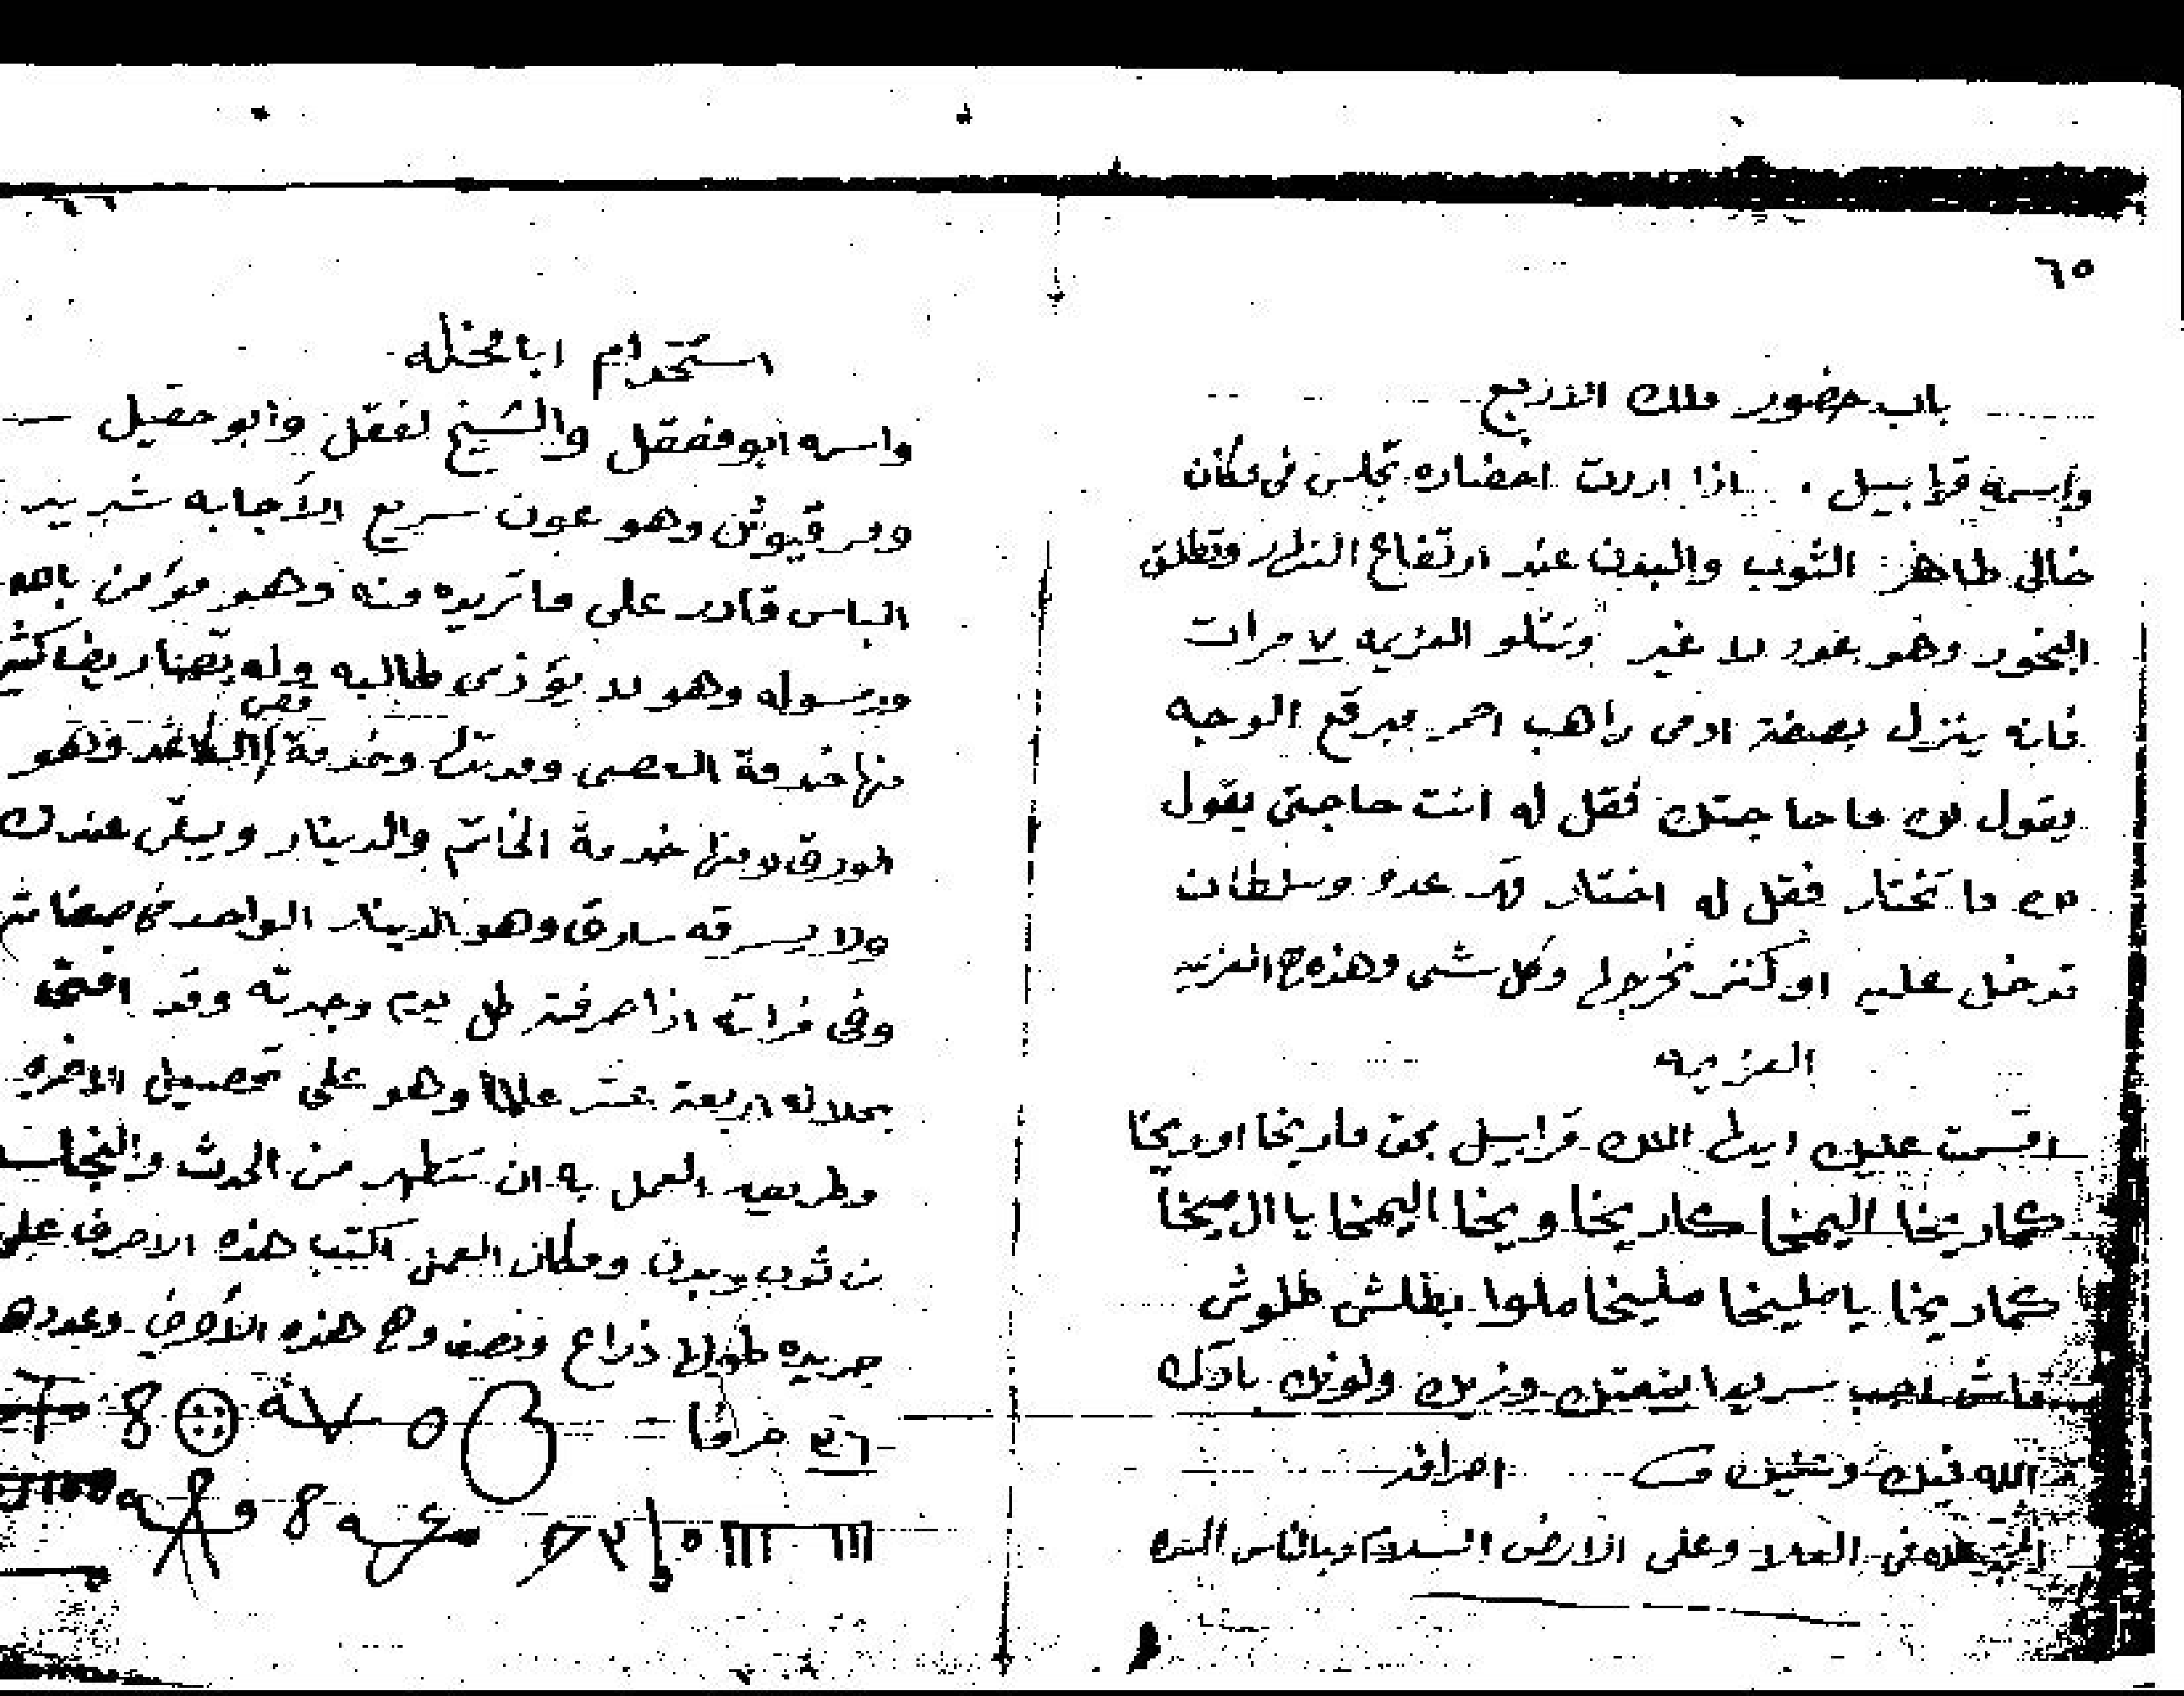 ٦٥
باب حضور ملك الاربع
واسمه قرابيل . اذا اردت احضاره تجلس في مكان
خالي طاهر الثوب والبدن عند ارتفاع النهار وتطلق
البخور وهو عود لا غير وتتلو العزيمه ٧ مرات
فانه ينزل بصفة ادمي راهب احمر مبرقع الوجه
يقول لك ما حاجتك فقل له انت حاجتي يقول
لك ما تختار فقل له اختار قهر عدو وسلطان
تدخل عليه او كنز تخرجه لي وكل شي وهذه العزيمه
العزيمه
اقسمت عليك ايها الملك قرابيل بحق ماريخا اوريخا
كماريخا اليمخا كاريخا ويخا اليمخا يا ال ميخا
كماريخا يا مليخا مليخا ملوا بطلش طلوش
اجب سريعا بنعتك وزيك ولونك بارك
الله فيك وعليك
في العلا وعلى الارض السلام وبالناس المسره
استخدام ابا نخله
واسمه ابو فقفل والشيخ لفقل وابو حقيل
ومرقيوش وهو عون سريع الأجابه شديد
الباس قادر على ما تريده منه وهو مؤمن بالله
وبرسوله وهو لا يؤذي طالبه وله تصاريف كثير
منها خدمة العصى وخدمة قص الكاغد وهو
الورق ومنها خدمة الخاتم والدينار ويبقى عندك
ولا يسرقه سارق وهو الدينار الواحد
وفي اذا صرفته كل يوم وجدته وقد افتى
بحلاله اربعة عشر عالما وهو على تحصيل الاجره
وطريقه العمل به ان تتطهر من الحدث والنجاسه
من ثوب وبدن ومكان العمل اكتب هذه الاحرف على
جريده طولها ذراع ونصف وهي هذه الأحرف وعددها
٣٦ حرفا